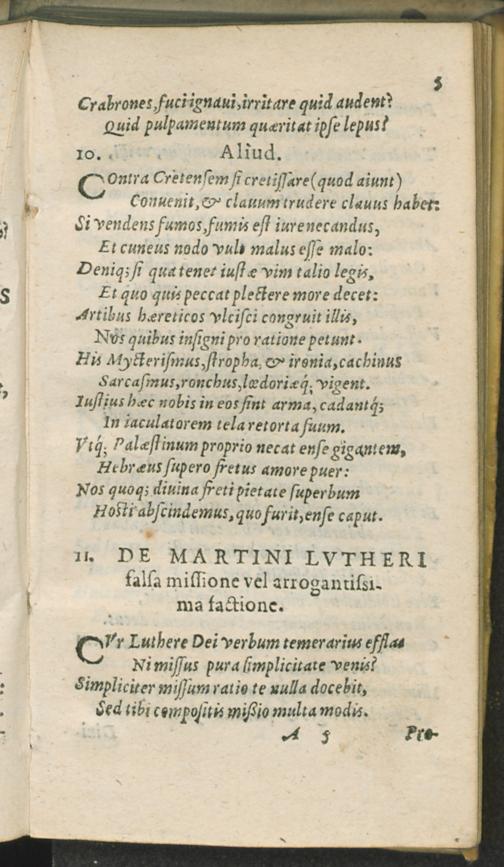 5
Crabrones, fuci ignaui, irritare quid audent?
Quid pulpamentum quæritat ipse lepus?
10. Aliud.
COntra Cretensem si cretissare (quod aiunt)
Conuenit, & clauum trudere clauus habet:
Si vendens fumos, fumis est iure necandus,
Et cuneus nodo vult malus esse malo:
Deniq; si qua tenet iustæ vim talio legis,
Et quo quis peccat plectere more decet:
Artibus hæreticos vlcisci congruit illis,
Nos quibus insigni pro ratione petunt.
His Mycterismus, stropha, & ironia, cachinus
Sarcasmus, ronchus, lœdoriæq́; vigent.
Iustius hæc nobis in eos sint arma, cadantq́;
In iaculatorem tela retorta suum.
Vtq́; Palæstinum proprio necat ense gigantem,
Hebræus supero fretus amore puer:
Nos quoq; diuina freti pietate superbum
Hosti abscindemus, quo furit, ense caput.
11. DE MARTINI LVTHERI
falsa missione vel arrogantissi-
ma factione.
CVr Luthere Dei verbum temerarius efflas
Ni missus pura simplicitate venis?
Simpliciter missum ratio te nulla docebit,
Sed tibi compositis mißio multa modis.
A 5 Pro-